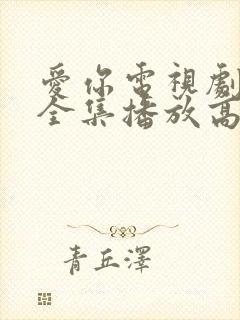 愛你電視劇
全集播放高
青丘澤